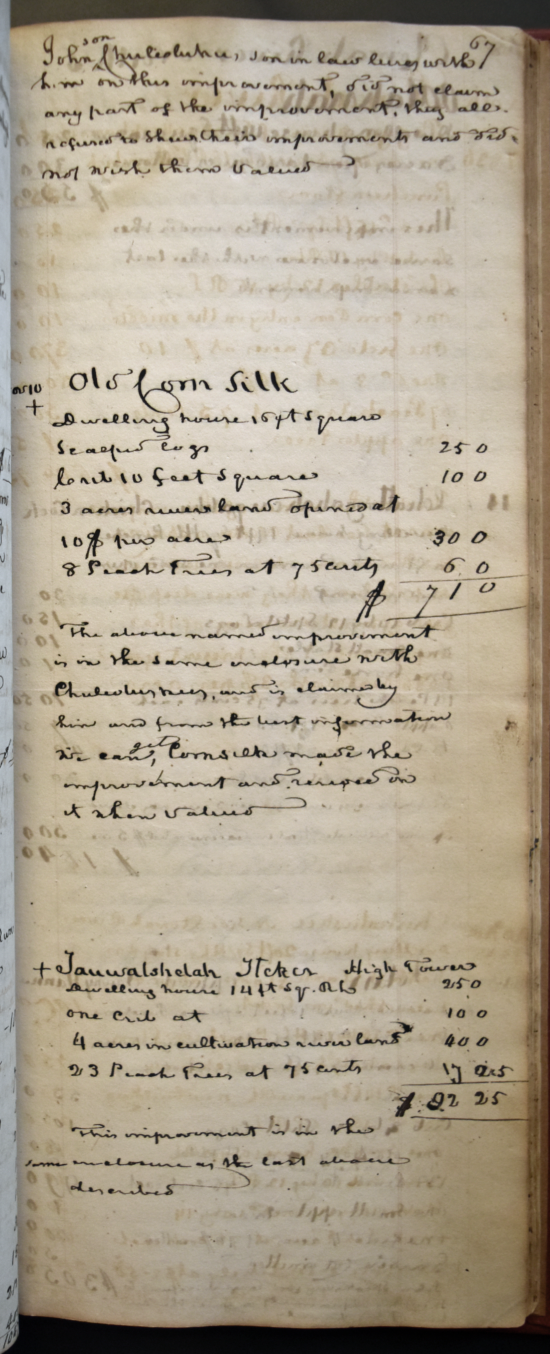 67
John son Chuleoluhee, son in law lives with
him on this improvement, did not claim
any part of the improvement, they all
refused to shew their improvements and did
not wish them valued
No 10 Old Corn Silk
+
Dwelling house 16 ft Square
Scalped Logs 25 0
one 10 feet Square 10 0
3 acres river land opened at
10$ per acre 30 0
8 Peach Trees at 75 cents 6 0
$ 71 0
The above named improvement
is in the same enclosure with
and is claimed by
him and from the best information
We can get, Cornsilk made the
improvement and resided on
it when valued
+ Tauwalshelah High Tower
Dwelling house 14 ft Sq. 25 0
one Crib at 10 0
4 acres in cultivation river land 40 0
23 Peach Trees at 75 cents 17 25
$ 92 25
This improvement is in the
same enclosure as the last above
described